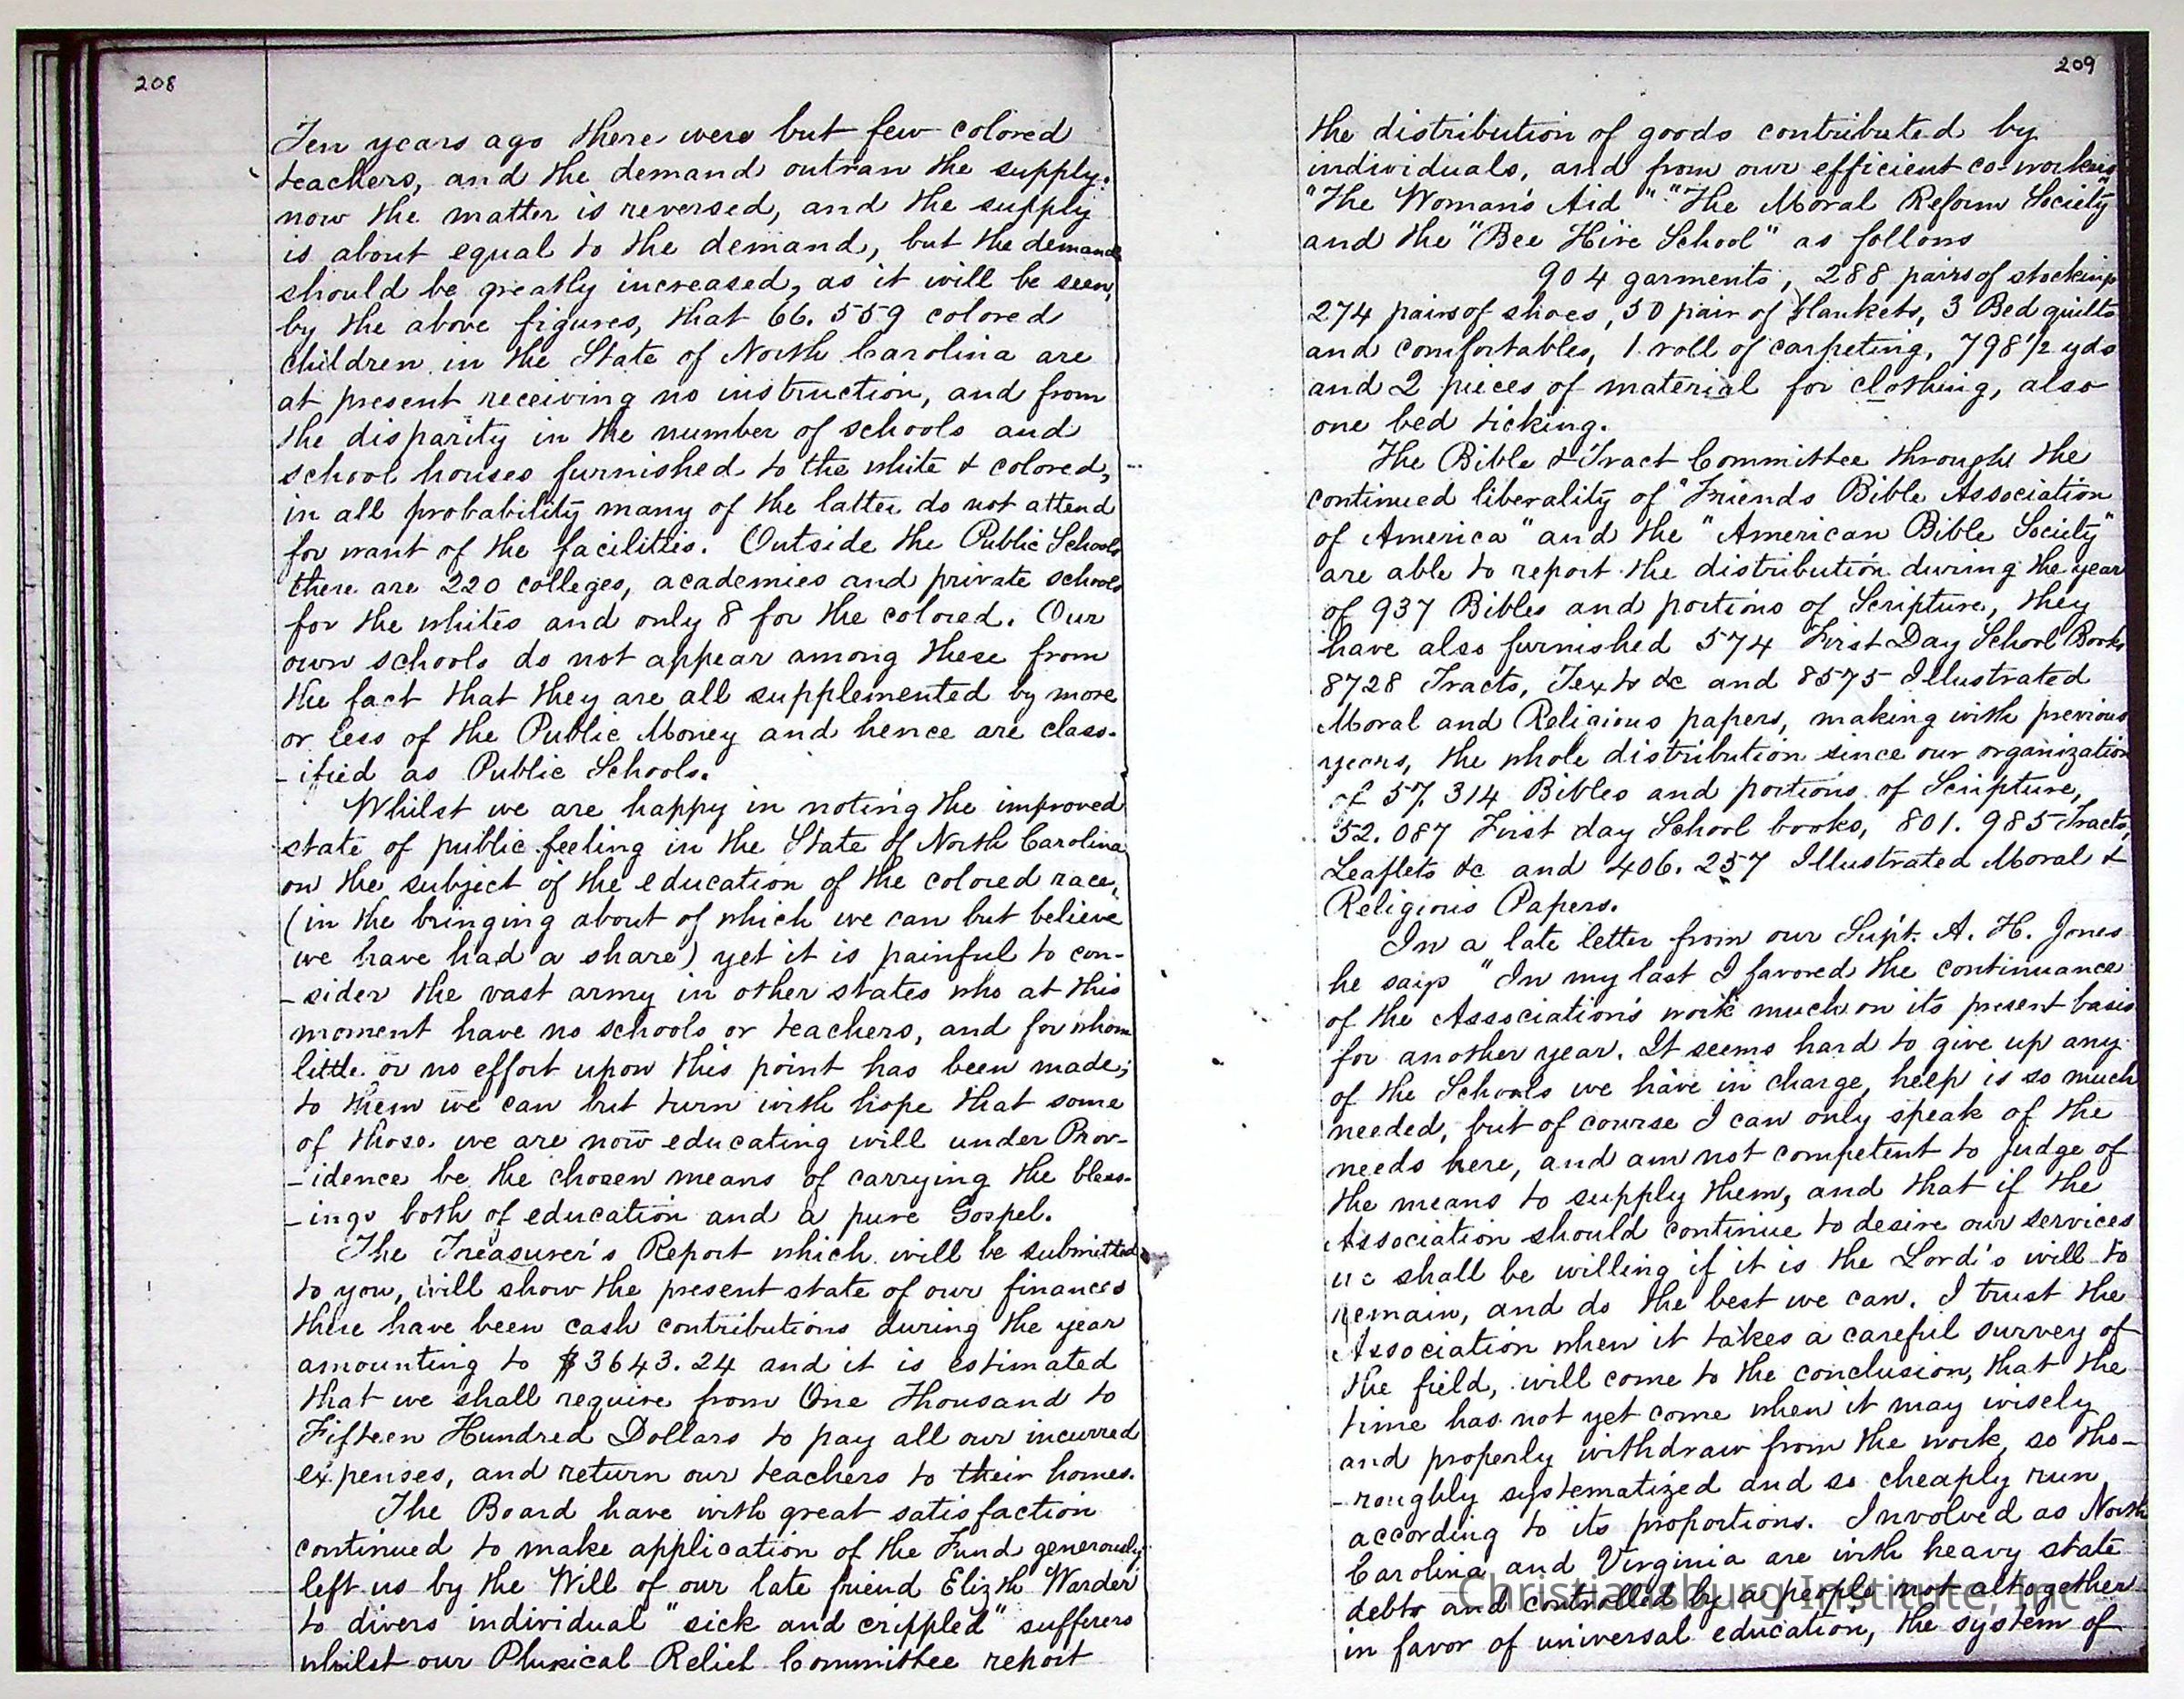 208
Ten years ago there were but few colored
teachers, and the demand outran the supply.
now the matter is reversed, and the supply
is about equal to the demand, but the demand
should be greatly increased, as it will be seen,
by the above figures, that 66.559 colored
children in the State of North Carolina are
at present receiving no instruction, and from
the disparity in the number of schools and
school houses furnished to the white & colored,
in all probability many of the latter do not attend
for want of the facilities. Outside the Public Schools
there are 220 colleges, academies and private schools
for the whites and only 8 for the colored. Our
own schools do not appear among these from
the fact that they are all supplemented by more
or less of the Public Money and hence are class-
-ified as Public Schools.
Whilst we are happy in noting the improved
state of public feeling in the State of North Carolina
on the subject of the education of the colored race,
(in the bringing about of which we can but believe
we have had a share) yet it is painful to con-
-sider the vast army in other states who at this
moment have no schools or teachers, and for whom
little or no effort upon this point has been made;
to them we can but turn with hope that some
of those we are now educating will under Prov-
-idence be the chosen means of carrying the bless-
-ings both of education and a pure Gospel.
The Treasurer's Report which will be submitted
to you, will show the present state of our finances
there have been cash contributions during the year
amounting to $3643.24 and it is estimated
that we shall require from One Thousand to
Fifteen Hundred Dollars to pay all our incurred
expenses, and return our teachers to their homes.
The Board have with great satisfaction
continued to make application of the Fund generously
left us by the Will of our late friend Elizth Warder
to divers individual "sick and crippled" sufferers
whilst our Phusical Relief Committee report
209
the distribution of goods contributed by
individuals, and from our efficient co-workers
"The Woman's Aid" "The Moral Reform Society"
and the "Bee Hive School" as follows
904 garments, 288 pairs of stockings
274 pairs of shoes, 50 pair of Blankets, 3 Bed quilts
and comfortables, 1 roll of carpeting, 798 1/2 yds
and 2 pieces of material for clothing, also
one bed ticking.
The Bible & Tract Committee through the
continued liberality of "Friends Bible Association
of America" and the "American Bible Society"
are able to report the distribution during the year
of 937 Bibles and portions of Scripture, they
have also furnished 574 First Day School Books
8728 Tracts, Texts &c and 8575 Illustrated
Moral and Religious papers, making with previous
years, the whole distribution since our organization
of 57.314 Bibles and portions of Scripture,
52.087 First day School books, 801.985 Tracts,
Leaflets &c and 406.257 Illustrated Moral &
Religious Papers.
In a late letter from our Supt. A. H. Jones
he says "In my last I favored the continuance
of the Association's work much on its present basis
for another year. It seems hard to give up any
of the Schools we have in charge, help is so much
needed, but of course I can only speak of the
needs here, and am not competent to judge of
the means to supply them, and that if the
Association should continue to desire our services
we shall be willing if it is the Lord's will to
remain, and do the best we can. I trust the
Association when it takes a careful survey of
the field, will come to the conclusion, that the
time has not yet come when it may wisely
and properly withdraw from the work, so tho-
-roughly systematized and so cheaply run
according to its proportions. Involved as North
Carolina and Virginia are with heavy state
debts and controlled by a people not altogether
in favor of universal education, the system of
Christiansburg Institute, Inc